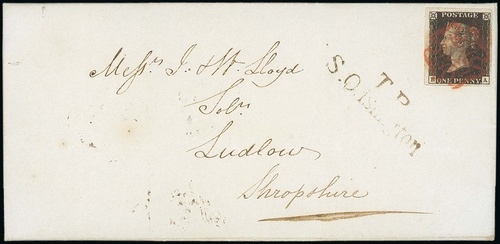 POSTAGE
ONE PENNY
T.P
S.O Islington
Messrs J. & W. Lloyd
Solrs
Ludlow
Shropshire